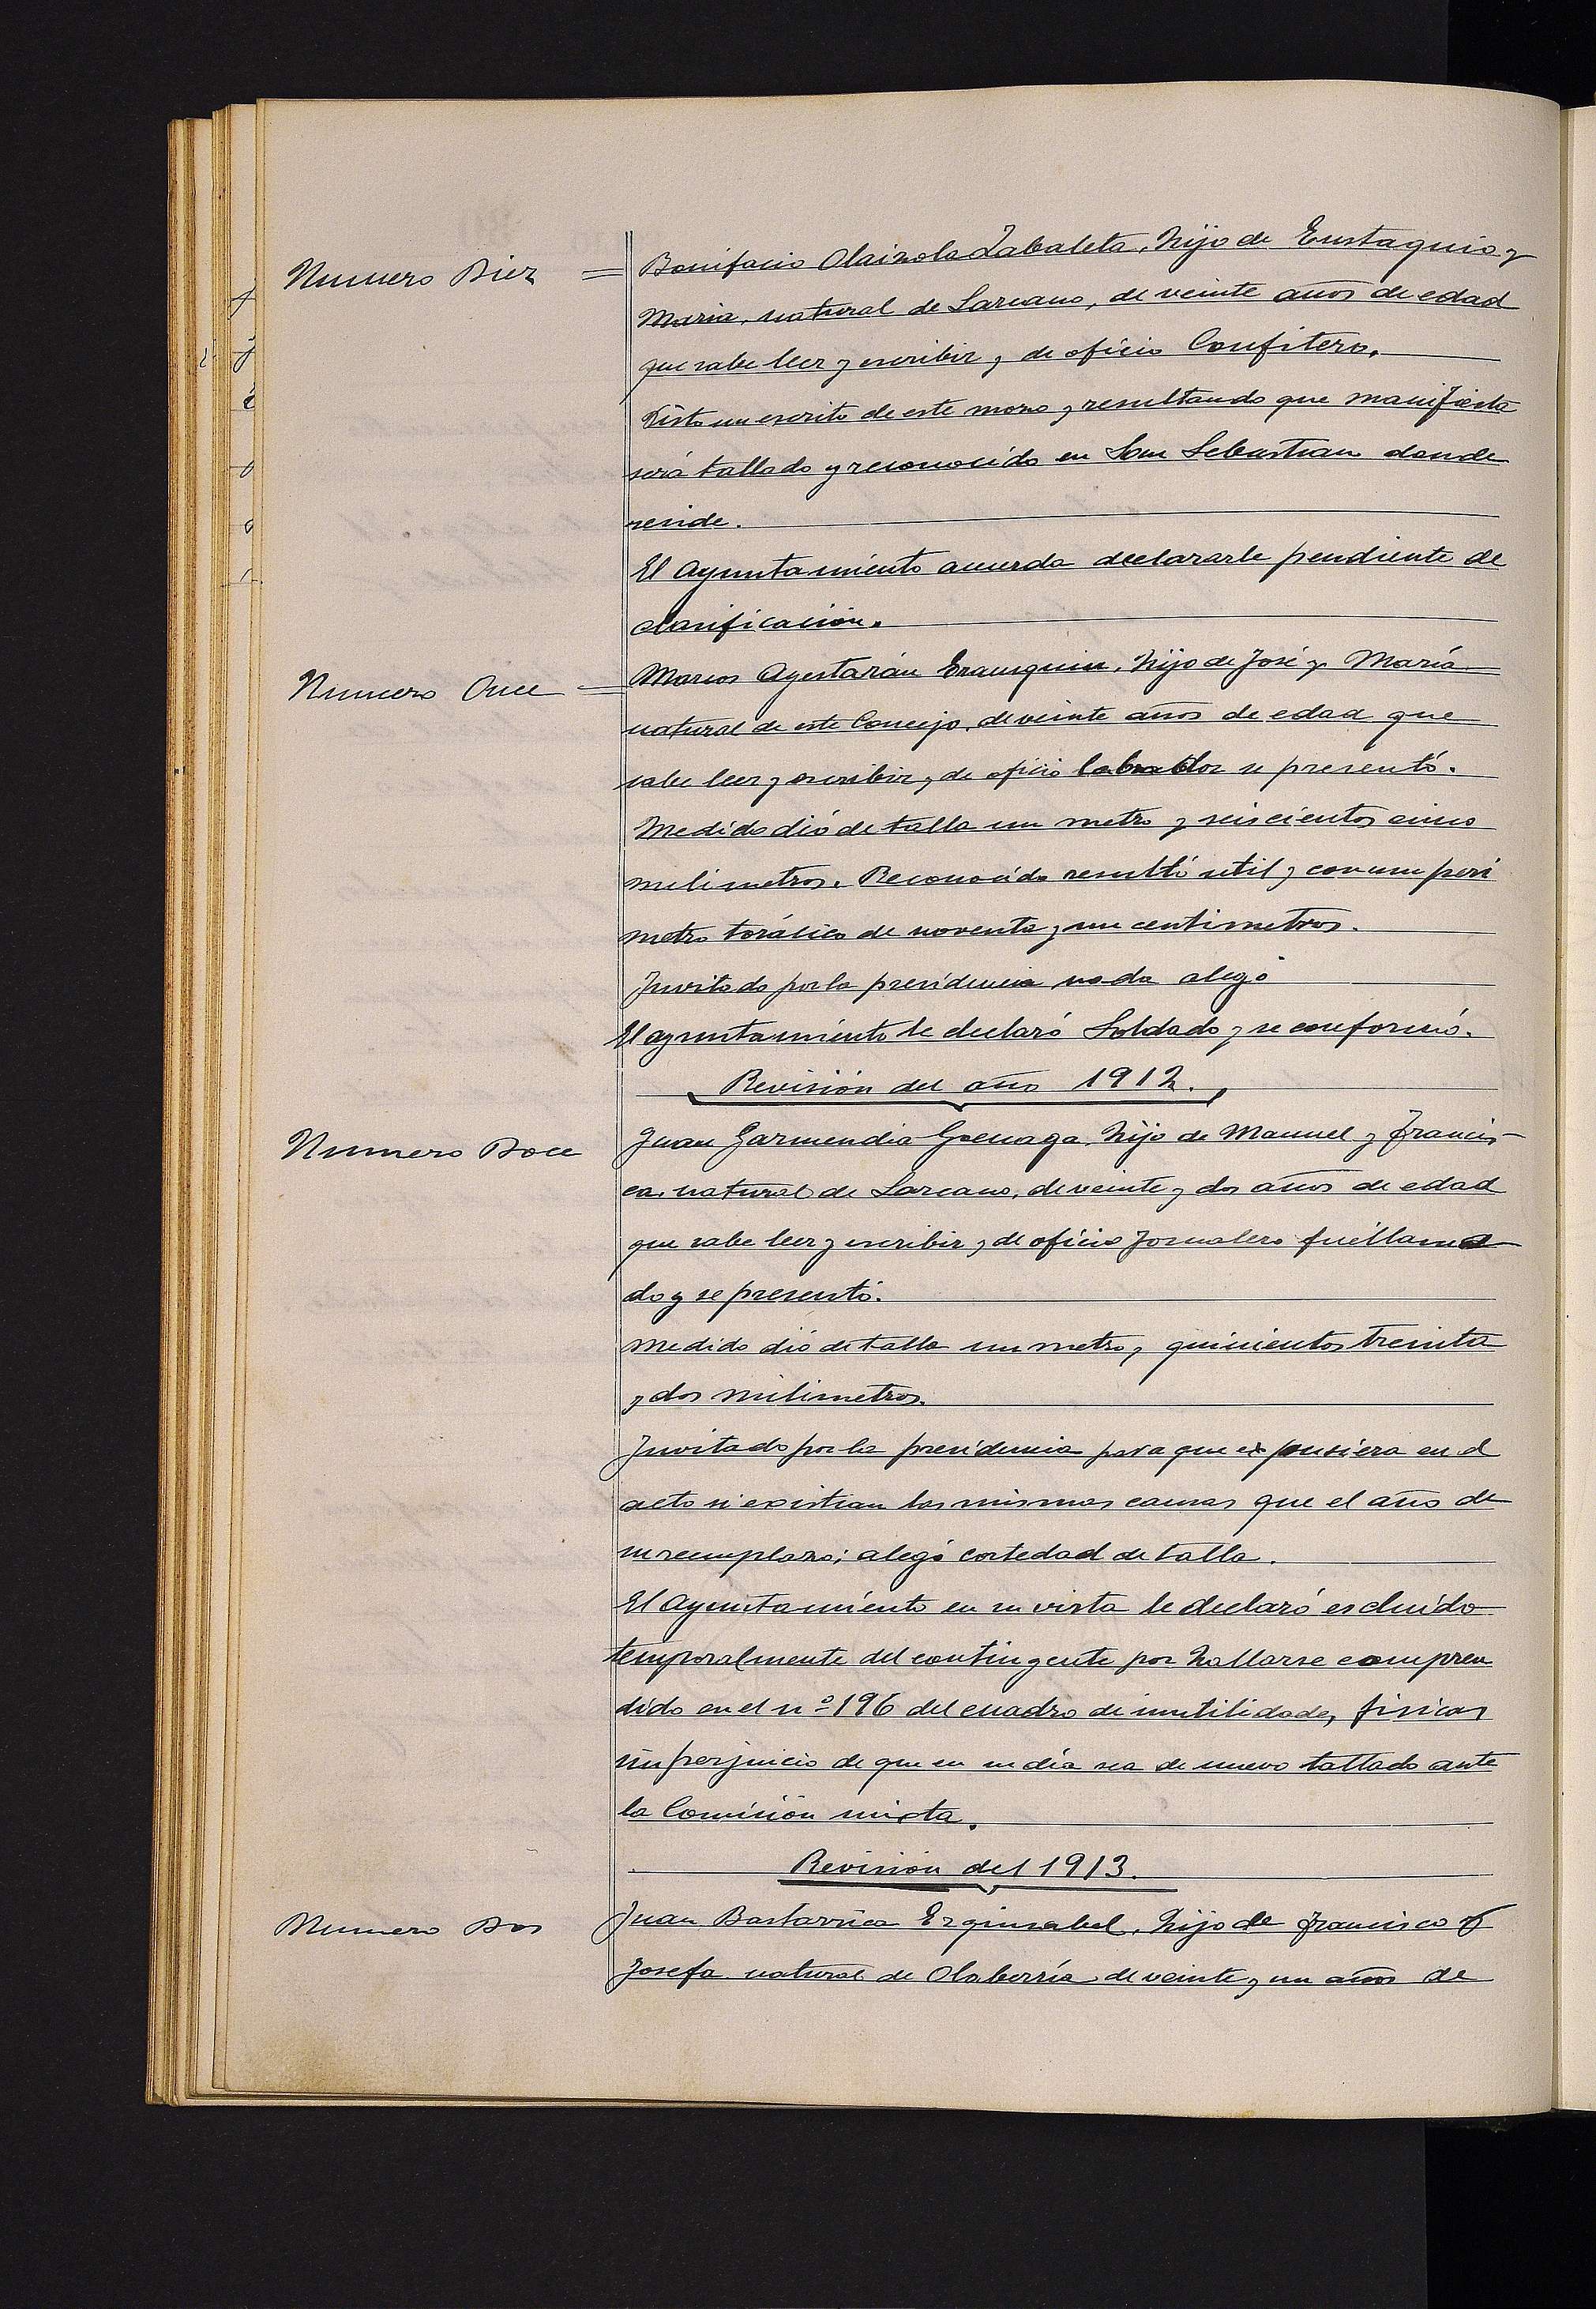 Numero Diez = Bonifacio Olaizola Zabaleta, hijo de Eustaquio y
Maria, natural de Lazcano, de veinte años de edad
que sabe leer y escribir y de oficio Confitero.
Visto un escrito de este mozo y resultando que manifiesta
será tallado y reconocido en San Sebastian donde
reside.
El Ayuntamiento acuerda declararle pendiente de
clasificación.
Numero Once = Marcos Ayestarán Erausquin, hijo de José y María
natural de este Concejo, de veinte años de edad que
sabe leer y escribir y de oficio labrador se presentó.
Medido dió de talla un metro y seiscientos cinco
milimetros. Reconocido resultó util y con un perí
metro torácico de noventa y un centimetros.
Invitado por la presidencia nada alegó
El ayuntamiento le declaró Soldado y se conformó.
Revisión del año 1912.
Numero Doce Juan Garmendia Goenaga hijo de Manuel y Francis-
ca, natural de Lazcano, de veinte y dos años de edad
que sabe leer y escribir y de oficio Jornalero fué llama
do y se presentó.
Medido dió de talla un metro y quinientos treinta
y dos milimetros.
Invitado por la presidencia para que expusiera en el
acto si existian las mismas causas que el año de
su reemplazo; alegó cortedad de talla.
El Ayuntamiento en su vista le declaró escluido
temporalmente del contingente por hallarse compren
dido en el nº 196 del cuadro de inutilidades fisicas
sin perjuicio de que en su día sea de nuevo tallado ante
la Comisión mixta.
Revisión del 1913.
Numero Dos Juan Bastarrica Ezquisabel, hijo de Francisco y
Josefa natural de Olaberría de veinte y un años de